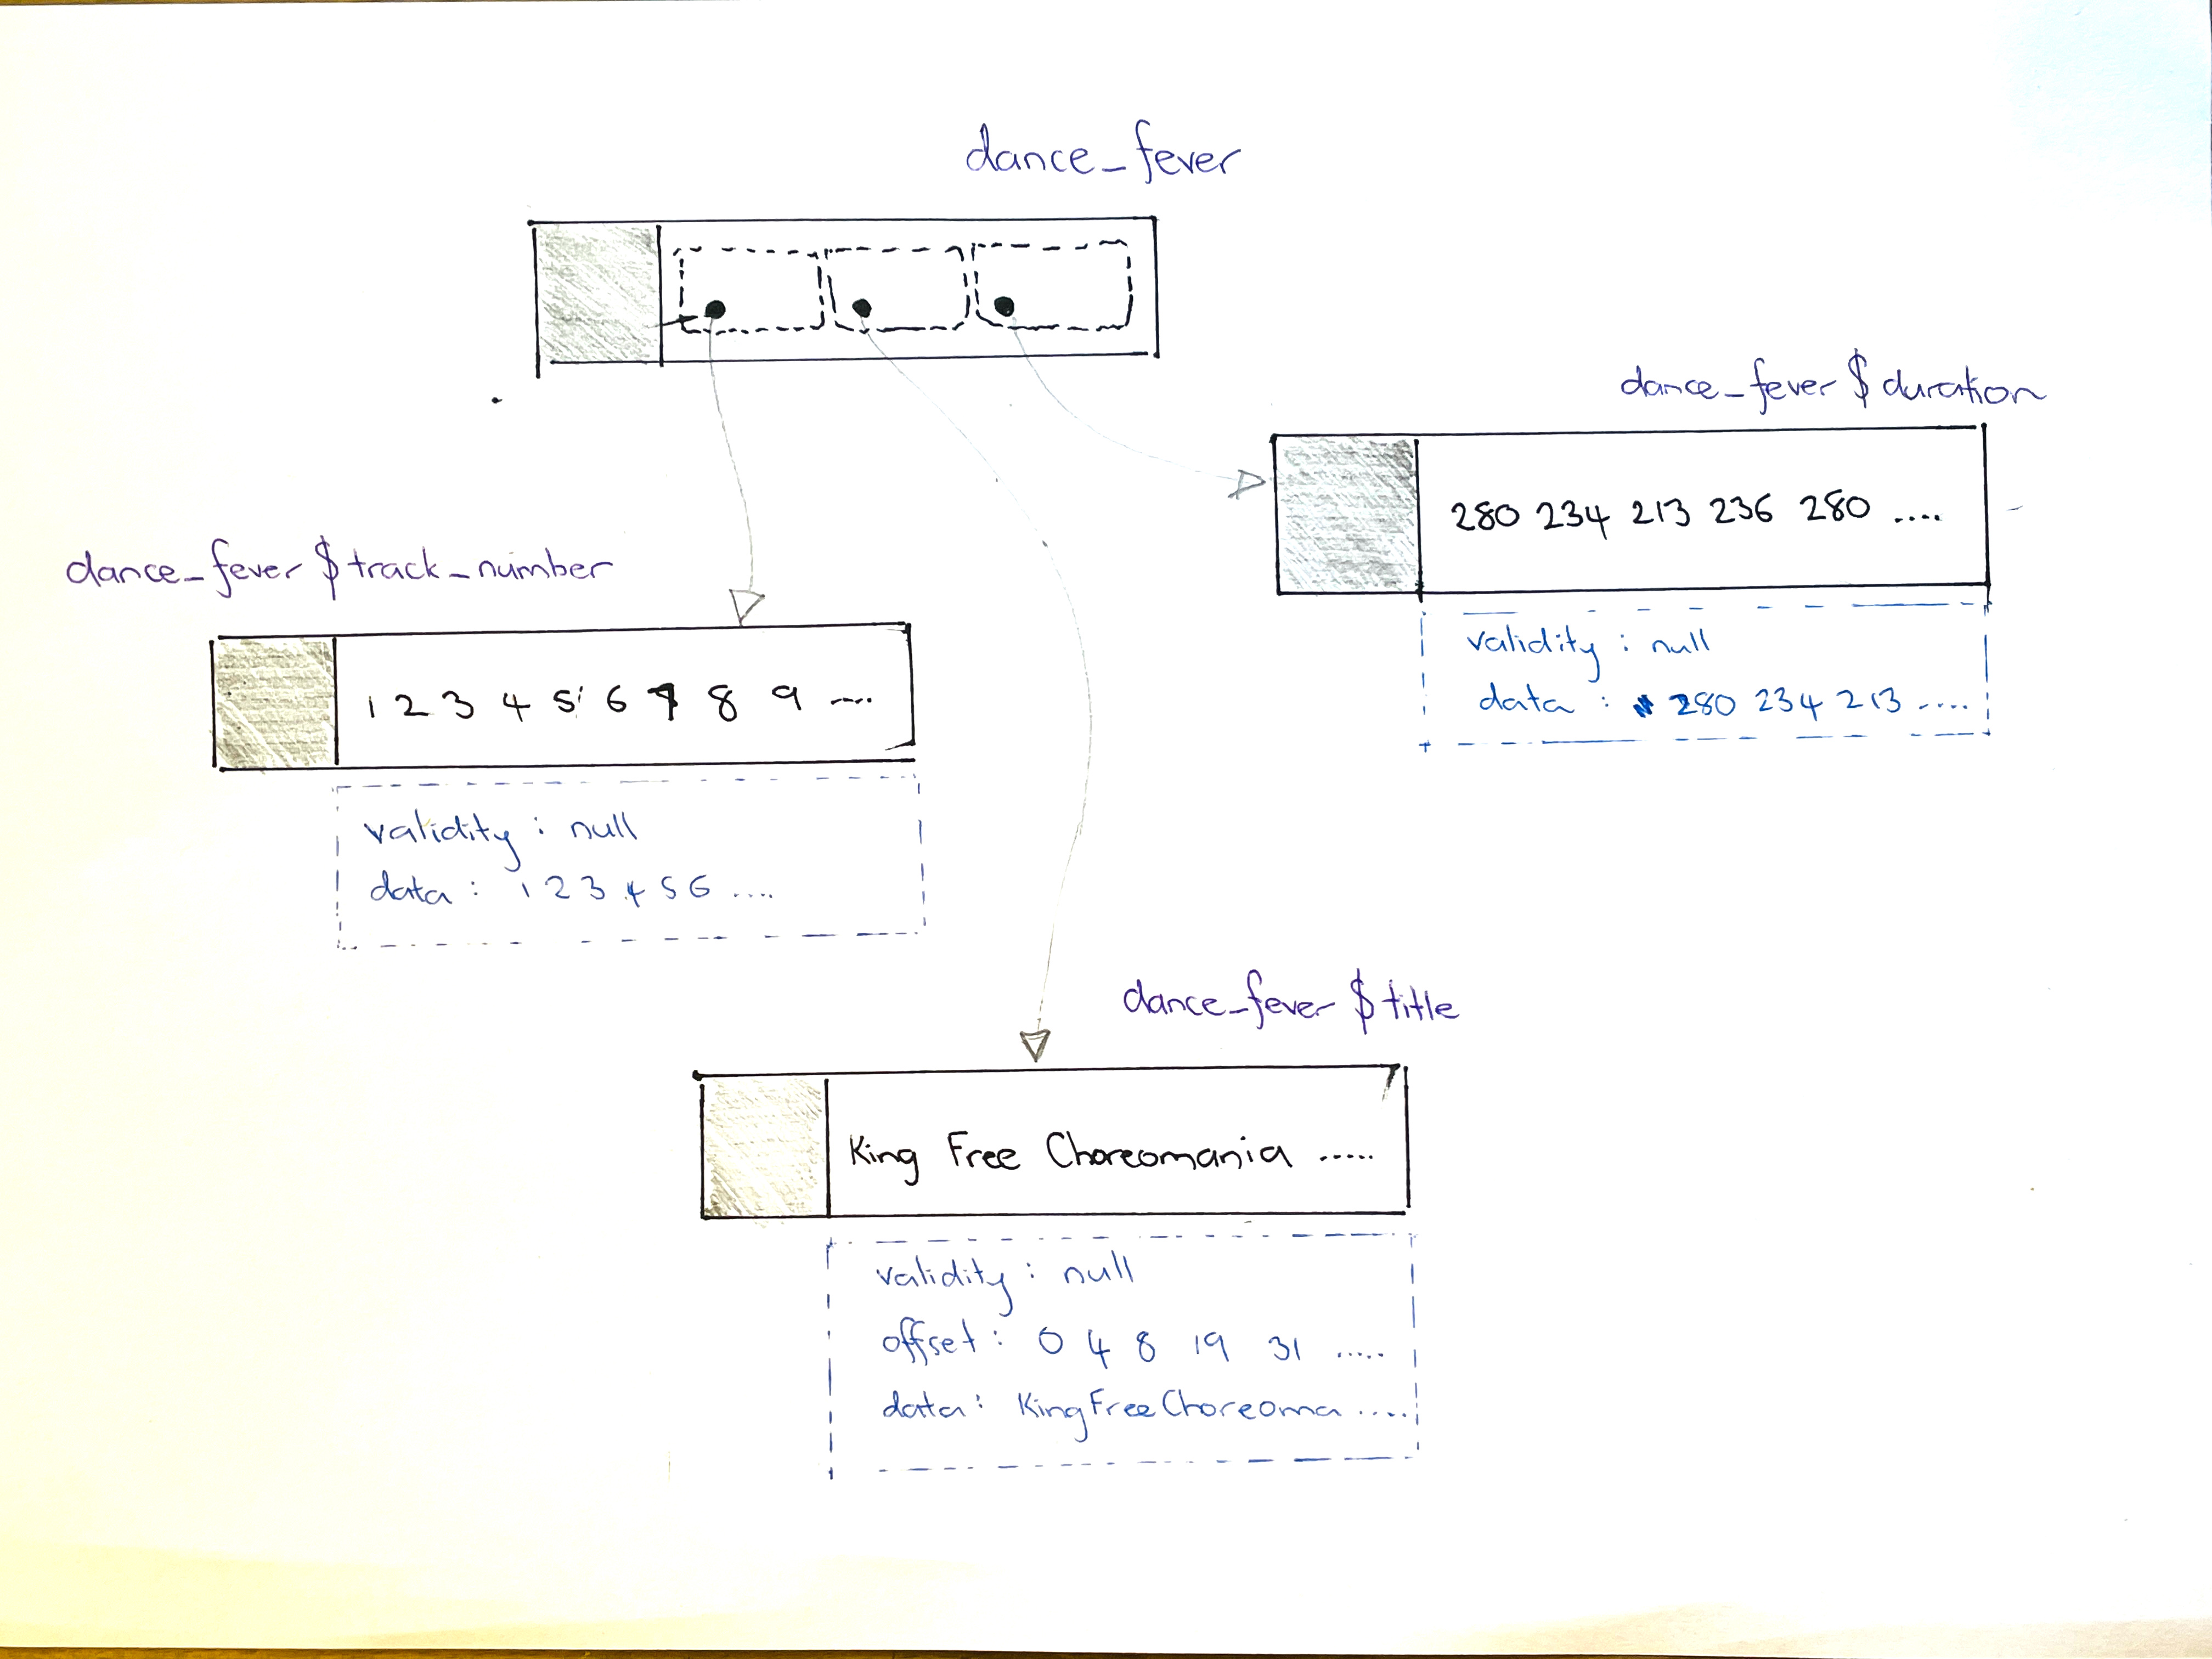 dance_fever
dance_fever $ duration
280 234 213 236 280 ....
validity : null
data : 280 234 213 ....
dance_fever $ track_number
1 2 3 4 5 6 7 8 9 ....
validity : null
data : 1 2 3 4 5 6 ....
dance_fever $ title
King Free Choreomania .....
validity : null
offset : 0 4 8 19 31 .....
data : KingFreeChoreoma .....